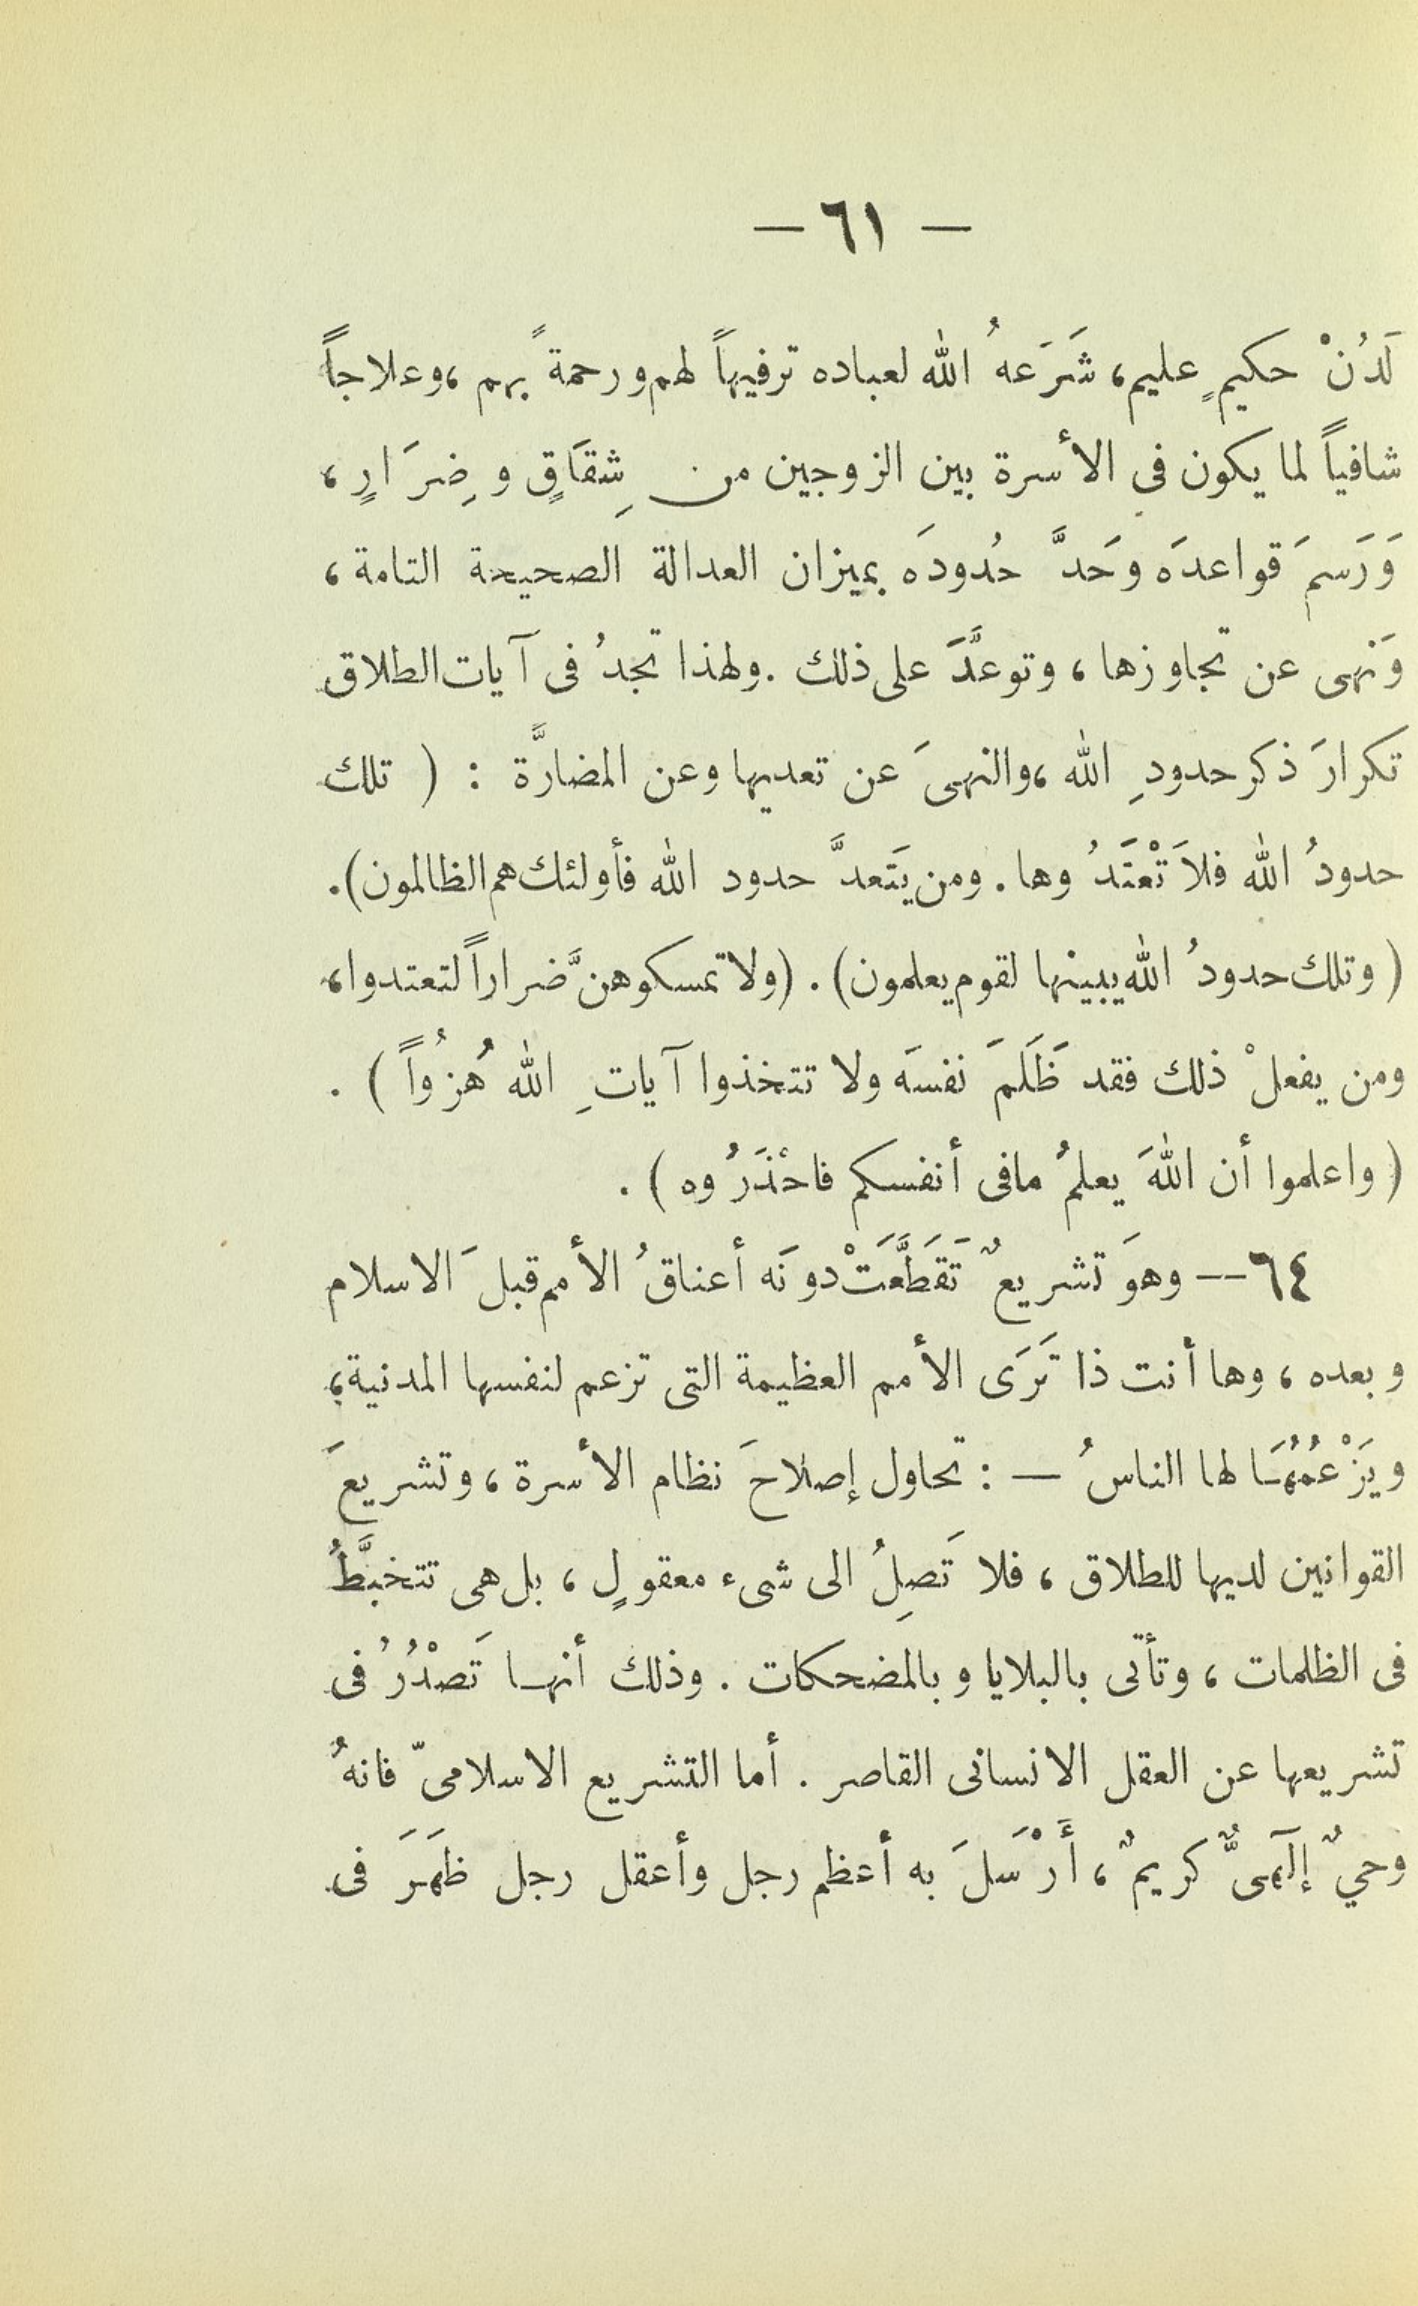 — ٦١ —
لَدُنْ حكيمٍ عليم، شَرَعهُ الله لعباده ترفيهاً لهم ورحمةً بهم، وعلاجاً
شافياً لما يكون فى الأسرة بين الزوجين من شِقَاقٍ وضِرَارٍ،
وَرَسمَ قواعدَه وحَدَّ حُدودَه بميزان العدالة الصحيحة التامة،
وَنهى عن تجاوزها، وتوعَّدَ على ذلك. ولهذا تجدُ فى آيات الطلاق
تكرارَ ذكر حدودِ الله، والنهىَ عن تعديها وعن المضارَّة : ( تلك
حدودُ الله فلاَ تْعتَدُوها. ومن يَتَعدَّ حدود الله فأولئك هم الظالمون).
( وتلك حدودُ الله يبينها لقوم يعلمون). (ولا تمسكوهنَّ ضراراً لتعتدوا،
ومن يفعلْ ذلك فقد ظَلَمَ نفسَه ولا تتخذوا آياتِ الله هُزُواً ) .
( واعلموا أن اللهَ يعلمُ مافى أنفسكم فاحْذَرُوه ) .
٦٤-- وهوَ تشريعٌ تَقَطَّعَتْ دونَه أعناقُ الأمم قبلَ الاسلام
وبعده، وها أنت ذا تَرَى الأمم العظيمة التى تزعم لنفسها المدنية،
ويَزْعُمُهَا لها الناسُ — : تحاول إصلاحَ نظام الأسرة، وتشريعَ
القوانين لديها للطلاق، فلا تَصِلُ الى شىء معقولٍ، بل هى تتخبَّطُ
فى الظلمات، وتأتى بالبلايا وبالمضحكات. وذلك أنها تَصْدُرُ فى
تشريعها عن العقل الانسانى القاصر. أما التشريع الاسلامىّ فانهُ
وحيٌ إلٓهىٌّ كريمٌ، أَرْسَلَ به أعظم رجل وأعقل رجل ظهَرَ فى